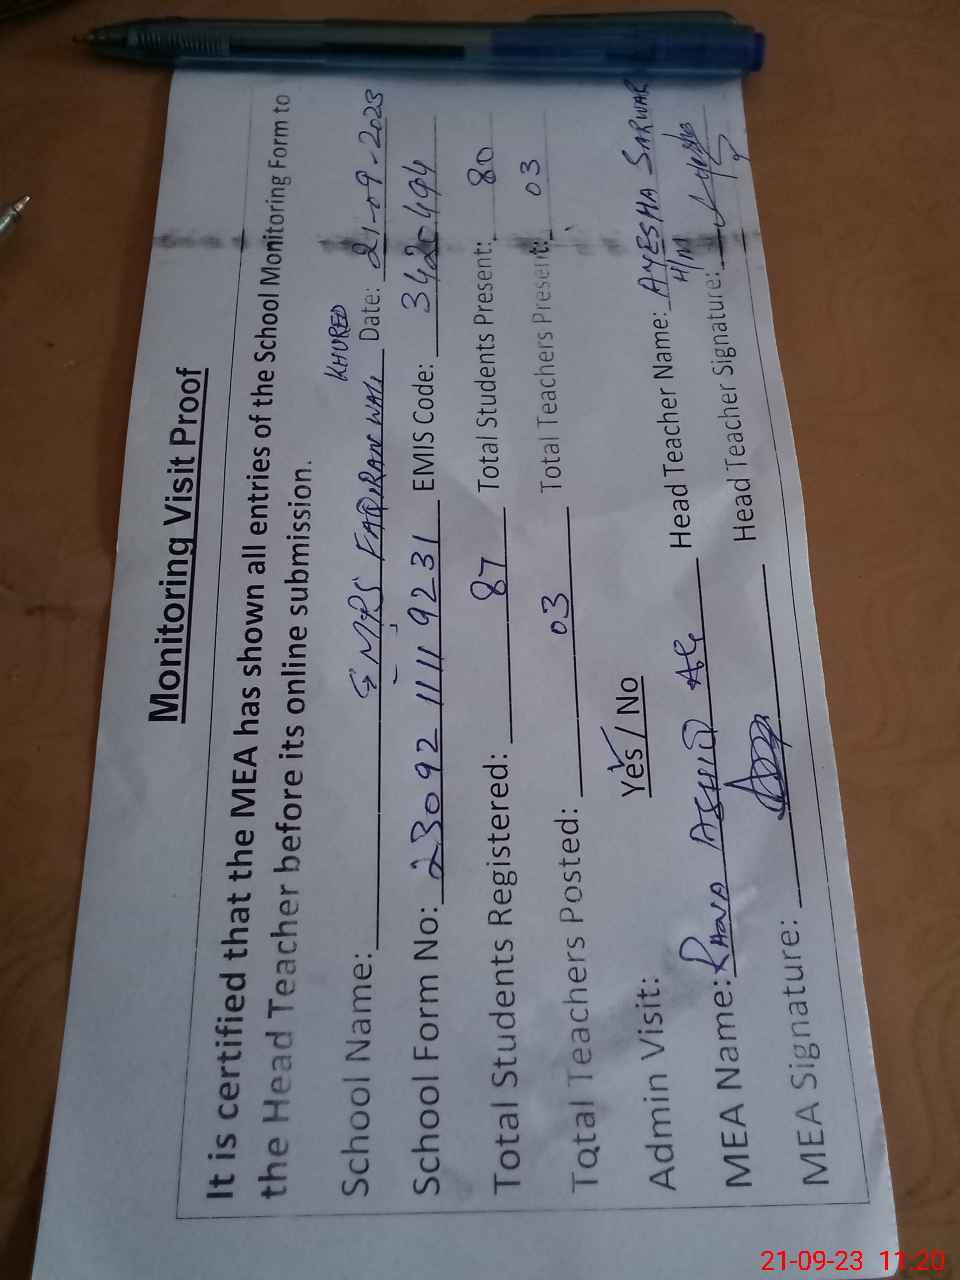 Monitoring Visit Proof
It is certified that the MEA has shown all entries of the School Monitoring Form to
the Head Teacher before its online submission.
KHURED
School Name: GMPS FAQIRAN WALI Date: 21-09-2023
School Form No: 23092 1111 9231 EMIS Code: 3420494
Total Students Registered: 87 Total Students Present: 80
Total Teachers Posted: 03 Total Teachers Present: 03
Admin Visit: Yes / No
MEA Name: RANA ASHIQ Ali Head Teacher Name: AYESHA SARWAR
H/M
MEA Signature: Head Teacher Signature: Ayesha
21-09-23 11:20